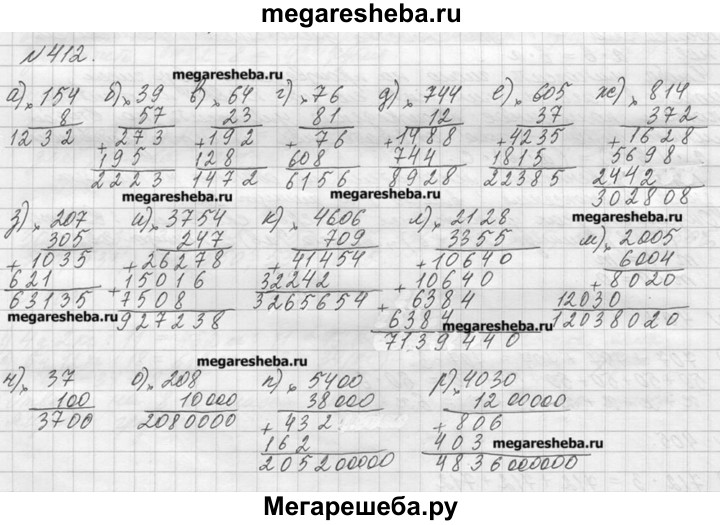 megaresheba.ru
№412.
megaresheba.ru
а) × 154 б) × 39 в) × 64 г) × 76 д) × 744 е) × 605 ж) × 814
8 57 23 81 12 37 372
1232 + 273 + 192 + 76 + 1488 + 4235 + 1628
195 128 608 744 1815 5698
2223 1472 6156 8928 22385 2442
megaresheba.ru megaresheba.ru 302808
megaresheba.ru
з) × 207 и) × 3754 к) × 4606 л) × 2128 м) × 2005
305 247 709 3355 6004
+ 1035 + 26278 + 41454 + 10640 + 8020
621 15016 32242 + 10640 12030
63135 + 7508 3265654 + 6384 12038020
927238 6384
7139440
megaresheba.ru megaresheba.ru megaresheba.ru
megaresheba.ru
н) × 37 о) × 208 п) × 5400 р) × 4030
100 10000 38000 1200000
3700 2080000 + 432 + 806
162 403
205200000 4836000000
megaresheba.ru
Мегарешеба.ру